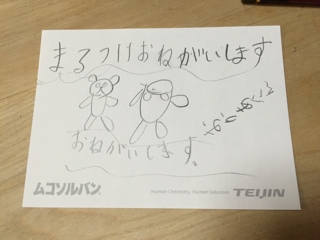 まるつけおねがいします
おねがいします。
ムコソルバン
Human Chemistry, Human Solutions
TEIJIN